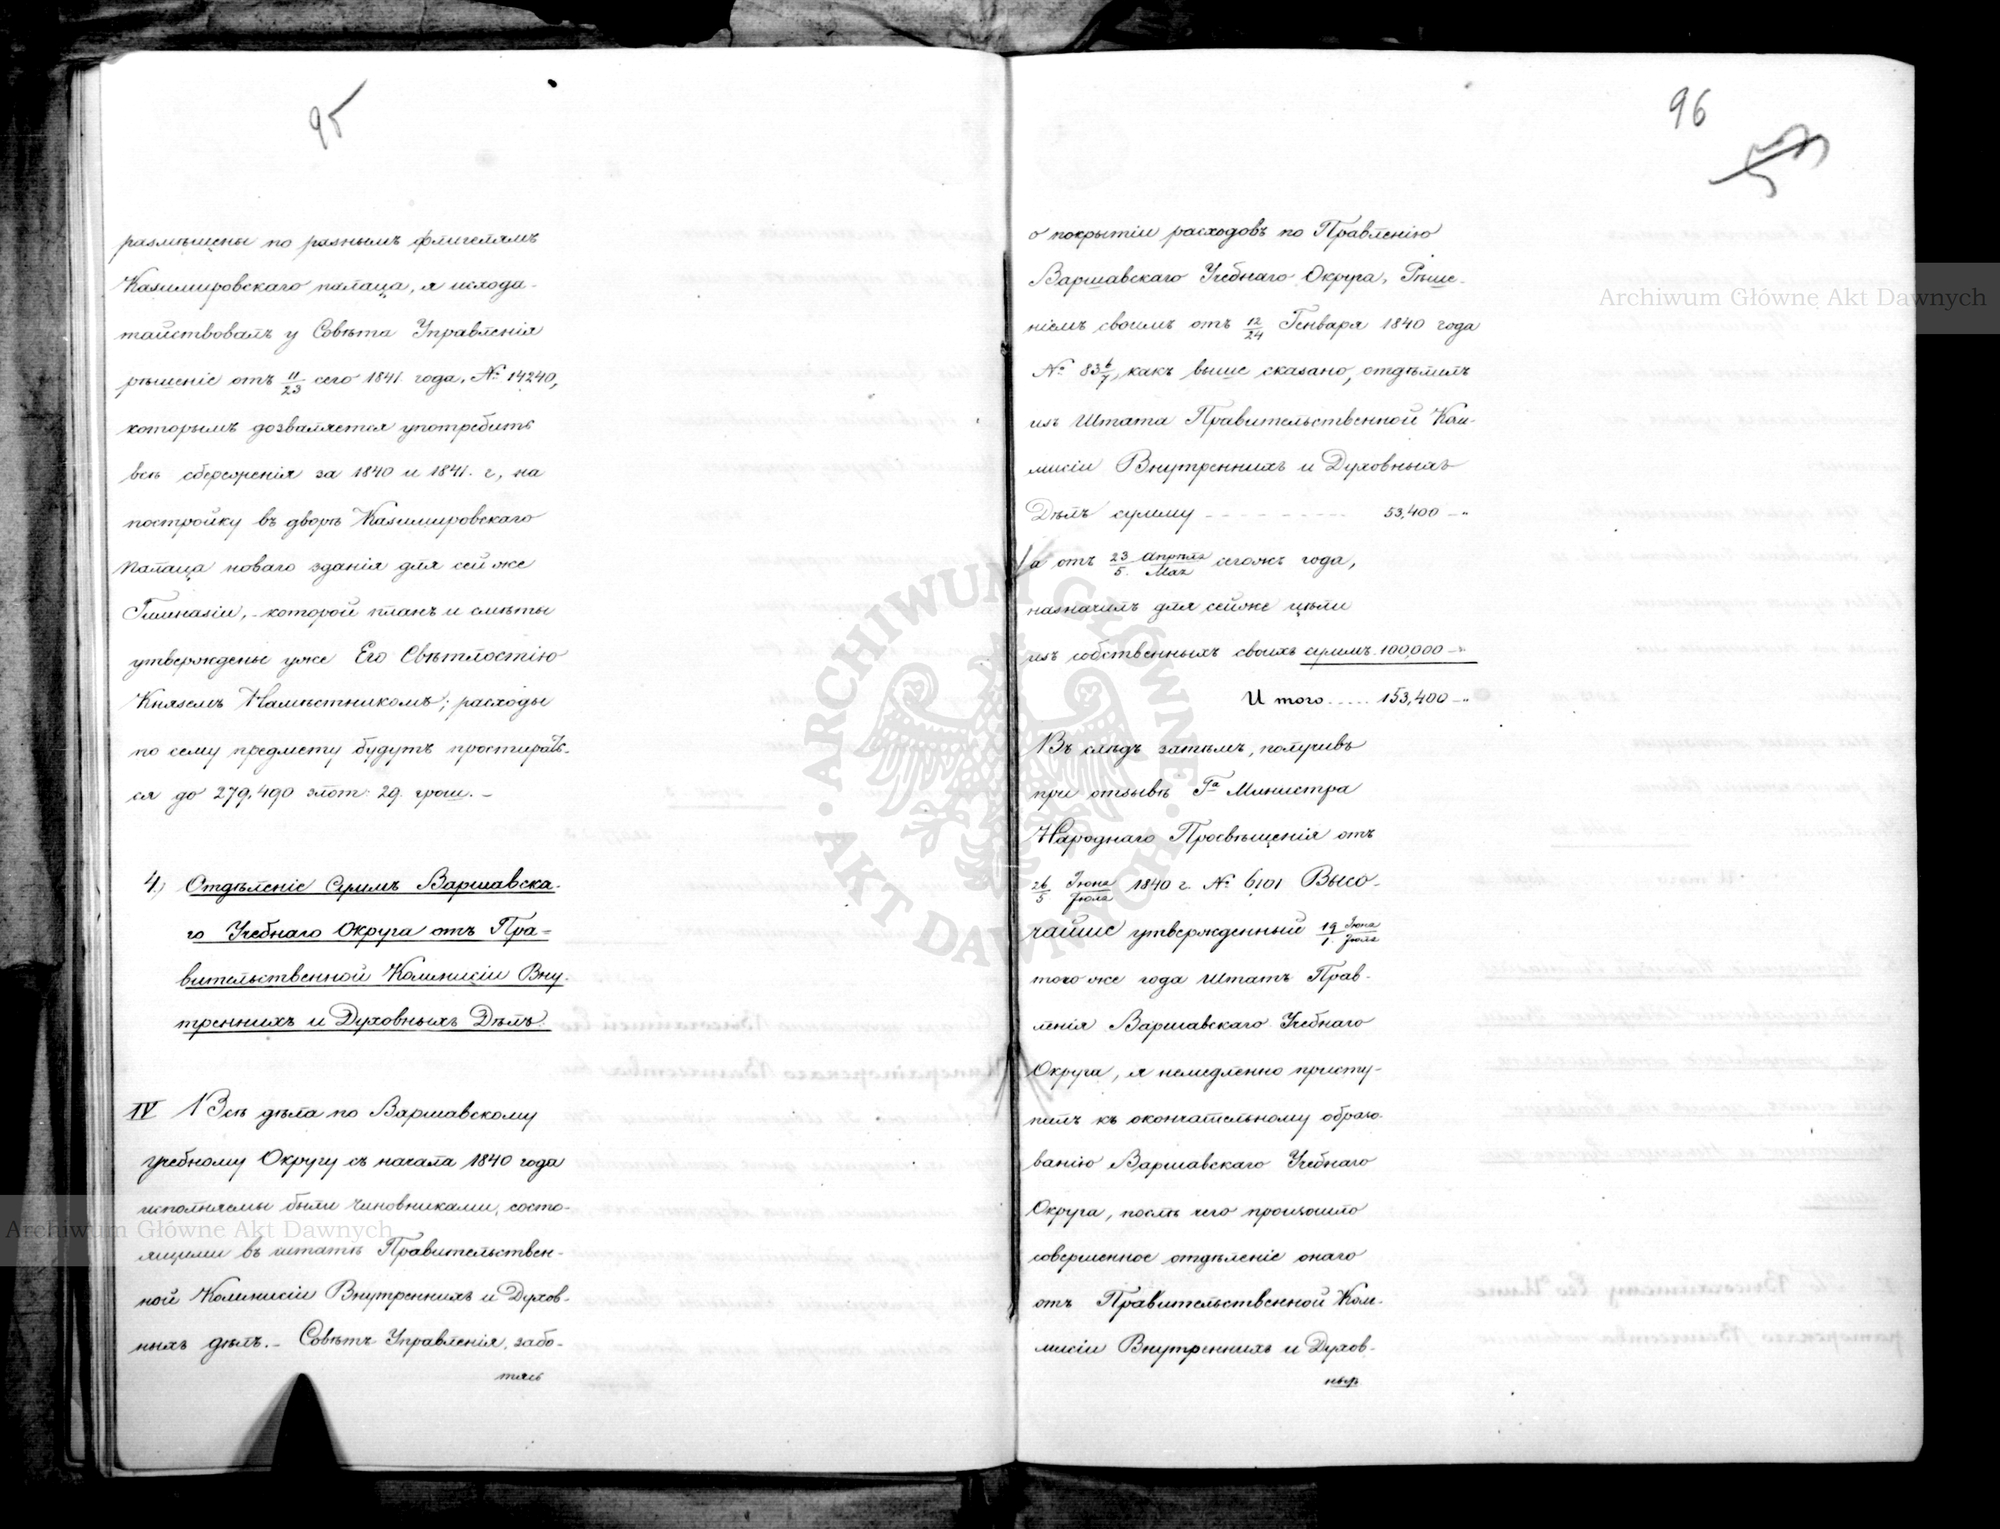 95
размѣщены по разнымъ флигелямъ
Казимировскаго палаца, я исхода-
тайствовалъ у Совѣта Управленія
рѣшеніе отъ 11/23 сего 1841 года, № 14240,
которымъ дозваляется употребить
всѣ сбереженія за 1840 и 1841. г, на
постройку въ дворѣ Казимировскаго
палаца новаго зданія для сей же
Гимназіи, - которой планъ и смѣты
утверждены уже Его Свѣтлостію
Княземъ Намѣстникомъ; расходы
по сему предмету будутъ простирать-
ся до 279,490 злот: 29. грош. -
4.) Отдѣленіе Суммъ Варшавска-
го Учебнаго Округа отъ Пра-
вительственной Коммисіи Вну-
треннихъ и Духовныхъ Дѣлъ.
IV Всѣ дѣла по Варшавскому
учебному Округу съ начала 1840 года
исполняемы были чиновниками, состо-
ящими въ штатѣ Правительствен-
ной Коммисіи Внутреннихъ и Духов-
ныхъ дѣлъ. - Совѣтъ Управленія, забо-
тясь
96
о покрытіи расходовъ по Правленію
Варшавскаго Учебнаго Округа, Рѣше-
ніемъ своимъ отъ 12/24 Генваря 1840 года
№ 836/7, какъ выше сказано, отдѣлилъ
изъ Штата Правительственной Ком-
мисіи Внутреннихъ и Духовныхъ
Дѣлъ сумму - - - - - - - - - - 53,400 - „
а отъ 23 Апрѣля/5. Мая сегожъ года,
назначилъ для сейже цѣли
изъ собственныхъ своихъ суммъ. 100,000 - „
Итого ..... 153,400 - „
Въ слѣдъ затѣмъ, получивъ
при отзывѣ Га Министра
Народнаго Просвѣщенія отъ
26 Іюня/5 Іюля 1840 г. № 6101 Высо-
чайше утвержденный 19 Іюня/1. Іюля
того же года Штатъ Прав-
ленія Варшавскаго Учебнаго
Округа, я немедленно присту-
пилъ къ окончательному образо-
ванію Варшавскаго Учебнаго
Округа, послѣ чего произошло
совершенное отдѣленіе онаго
отъ Правительственной Ком-
мисіи Внутреннихъ и Духов-
ныхъ
Archiwum Główne Akt Dawnych
Archiwum Główne Akt Dawnych
ARCHIWUM GŁÓWNE · AKT DAWNYCH ·